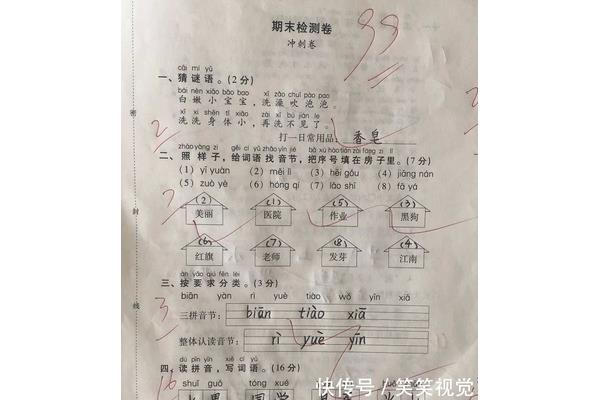 期末检测卷
冲刺卷
99
cāi mí yǔ
一、猜谜语。(2分)
bái nèn xiǎo bǎo bao xǐ zǎo chuī pào pao
白嫩小宝宝，洗澡吹泡泡。
xǐ xi shēn tǐ xiǎo zài xǐ bú jiàn le
洗洗身体小，再洗不见了。
打一日常用品：香皂
2
zhào yàng zi gěi cí yǔ zhǎo yīn jié bǎ xù hào tián zài fáng zi lǐ
二、照样子，给词语找音节，把序号填在房子里。(7分)
(1) yī yuàn (2) měi lì (3) hēi gǒu (4) jiāng nán
(5) zuò yè (6) hóng qí (7) lǎo shī (8) fā yá
(2) (1) (5) (3)
美丽 医院 作业 黑狗
(6) (7) (8) (4)
红旗 老师 发芽 江南
àn yāo qiú fēn lèi
三、按要求分类。(3分)
3
biān yàn rì yuè tiào wǒ yīn xiā
三拼音节： biān tiào xiā
整体认读音节： rì yuè yīn
dú pīn yīn xiě cí yǔ
四、读拼音，写词语。(16分)
16
shuǐ guǒ tóng xué
水果 同学
密
封
线
快传号／笑笑视觉